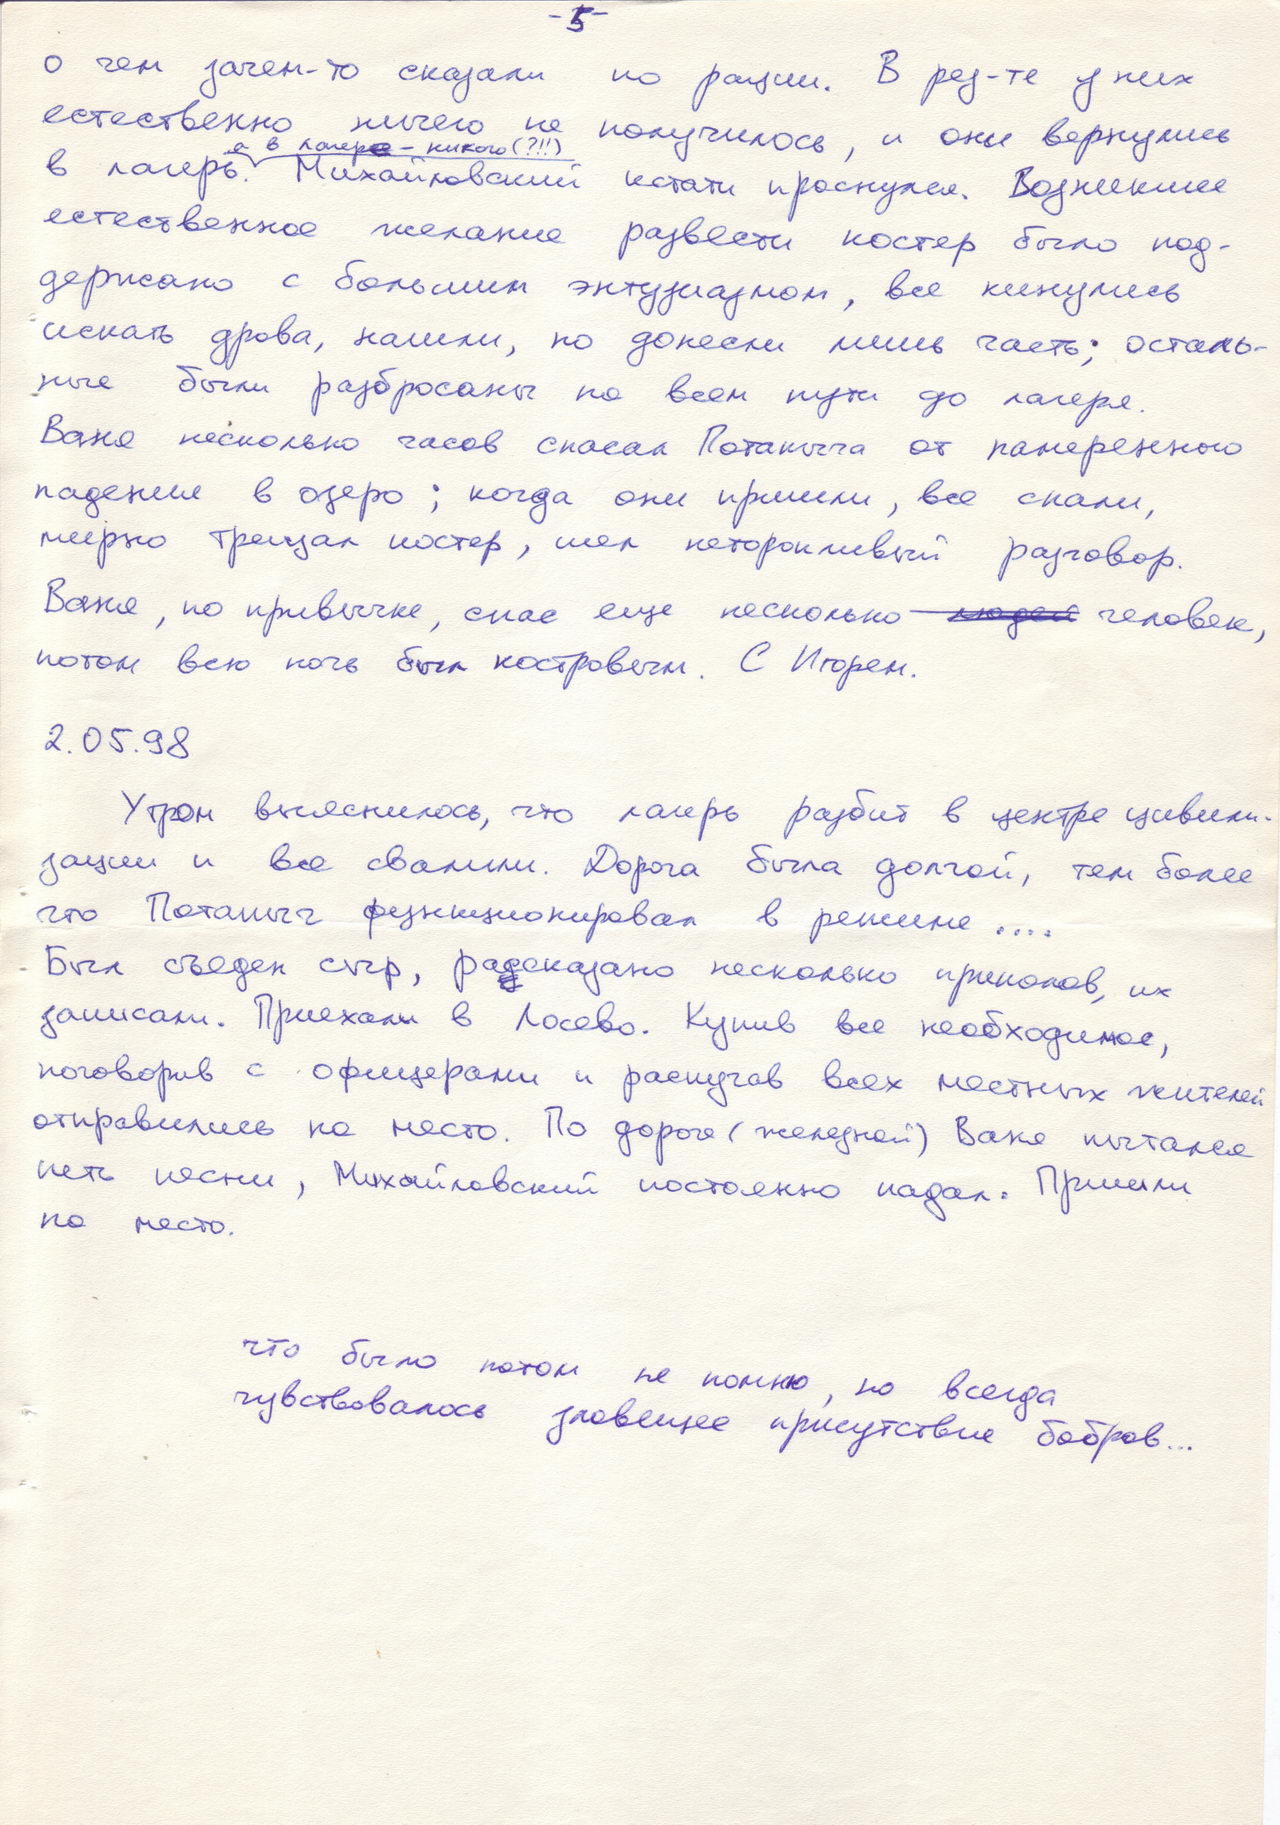 -5-
о чем зачем-то сказали по рации. В рез-те у них
естественно ничего не получилось, и они вернулись
а в лагере - никого (?!!)
в лагерь. Михайловский кстати проснулся. Возникшее
естественное желание развести костер было под-
держано с большим энтузиазмом, все кинулись
искать дрова, нашли, но донесли лишь часть; осталь-
ные были разбросаны по всем пути до лагеря.
Ваня несколько часов спасал Потапыча от намеренного
падения в озеро; когда они пришли, все спали,
мирно трещал костер, шел неторопливый разговор.
Ваня, по привычке, спас еще несколько людей человек,
потом всю ночь был костровым. С Игорем.
2.05.98
Утром выяснилось, что лагерь разбит в центре цивили-
зации и все свалили. Дорога была долгой, тем более
что Потапыч функционировал в режиме ....
Был съеден сыр, рассказано несколько приколов, их
записали. Приехали в Лосево. Купив все необходимое,
поговорив с офицерами и распугав всех местных жителей
отправились на место. По дороге (железной) Ваня пытался
петь песни, Михайловский постоянно падал. Пришли
на место.
что было потом не помню, но всегда
чувствовалось зловещее присутствие бобров...